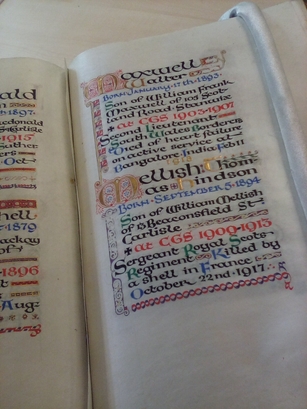 ald
1897·
acdonald
Carlisle
1915
uther
rs
Oct
hell
1879
ackay
of
1896
Aug:
Maxwell
Walter
BORN·JANUARY·17th·1893·
Son of William Frank
Maxwell of 105 Scot-
land Road·Stanwix
+ at CGS 1903-1907
Second Lieutenant
South Wales Borderers
Died of heart failure
on active service at
Bangalore India Feb: 11
1919
Mellish Tho
as·Hindson
BORN·SEPTEMBER·5·1894
Son of William Mellish
of 15 Beaconsfield St
Carlisle
+ at CGS 1909-1915
Sergeant Royal Scots
Regiment Killed by
a shell in France
October 22nd·1917·